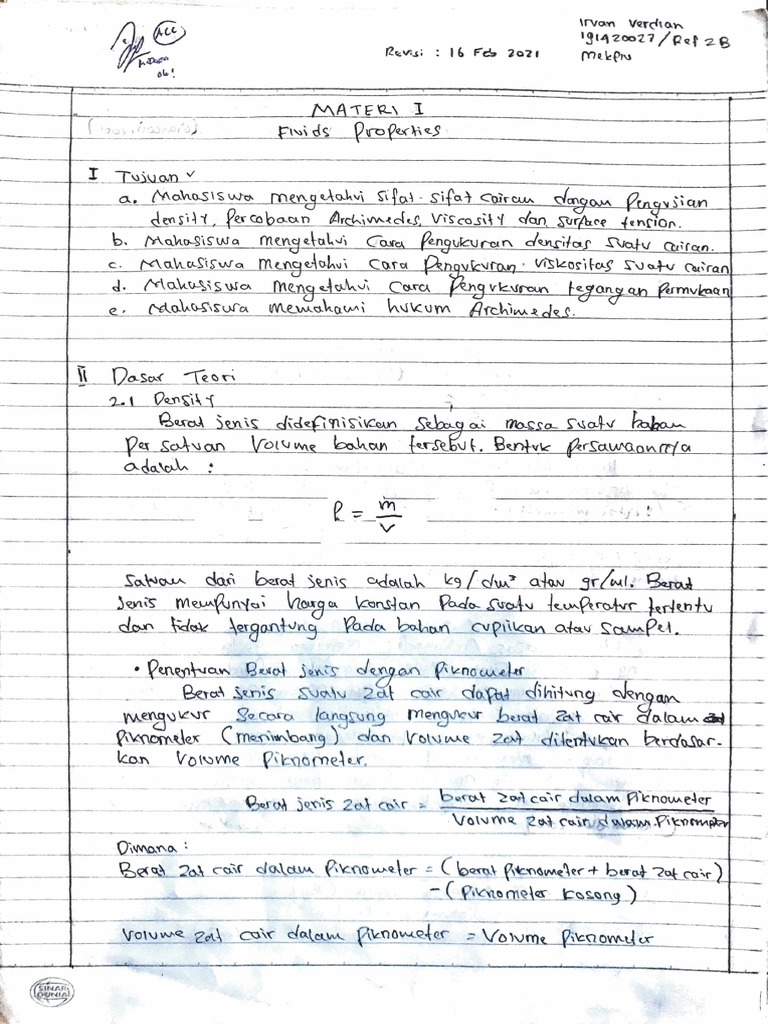 ACC
Irvan Verdian
191420027/Ref 2B
Mekflu
Revisi : 16 Feb 2021
MATERI I
Fluids Properties
I Tujuan
a. Mahasiswa mengetahui sifat-sifat cairan dengan Pengujian
density, Percobaan Archimedes, Viscosity dan surface tension.
b. Mahasiswa mengetahui Cara Pengukuran densitas suatu cairan.
c. Mahasiswa mengetahui cara Pengukuran viskositas suatu cairan
d. Mahasiswa mengetahui cara Pengukuran tegangan Permukaan
e. Mahasiswa memahami hukum Archimedes.
II Dasar Teori
2.1 Density
Berat jenis didefinisikan sebagai massa suatu bahan
Per satuan Volume bahan tersebut. Bentuk persamaannya
adalah :
ρ = m/v
Satuan dari berat jenis adalah kg/dm³ atau gr/ml. Berat
jenis mempunyai harga konstan Pada suatu temperatur tertentu
dan tidak tergantung Pada bahan cuplikan atau sampel.
• Penentuan Berat jenis dengan Piknometer
Berat jenis suatu zat cair dapat dihitung dengan
mengukur Secara langsung mengukur berat zat cair dalam
Piknometer (menimbang) dan Volume zat ditentukan berdasar-
kan Volume Piknometer.
Berat jenis zat cair = berat zat cair dalam Piknometer
Volume zat cair dalam Piknometer
Dimana :
Berat zat cair dalam Piknometer = (berat piknometer + berat zat cair)
-(Piknometer kosong)
Volume zat cair dalam piknometer = Volume Piknometer
SINAR
DUNIA